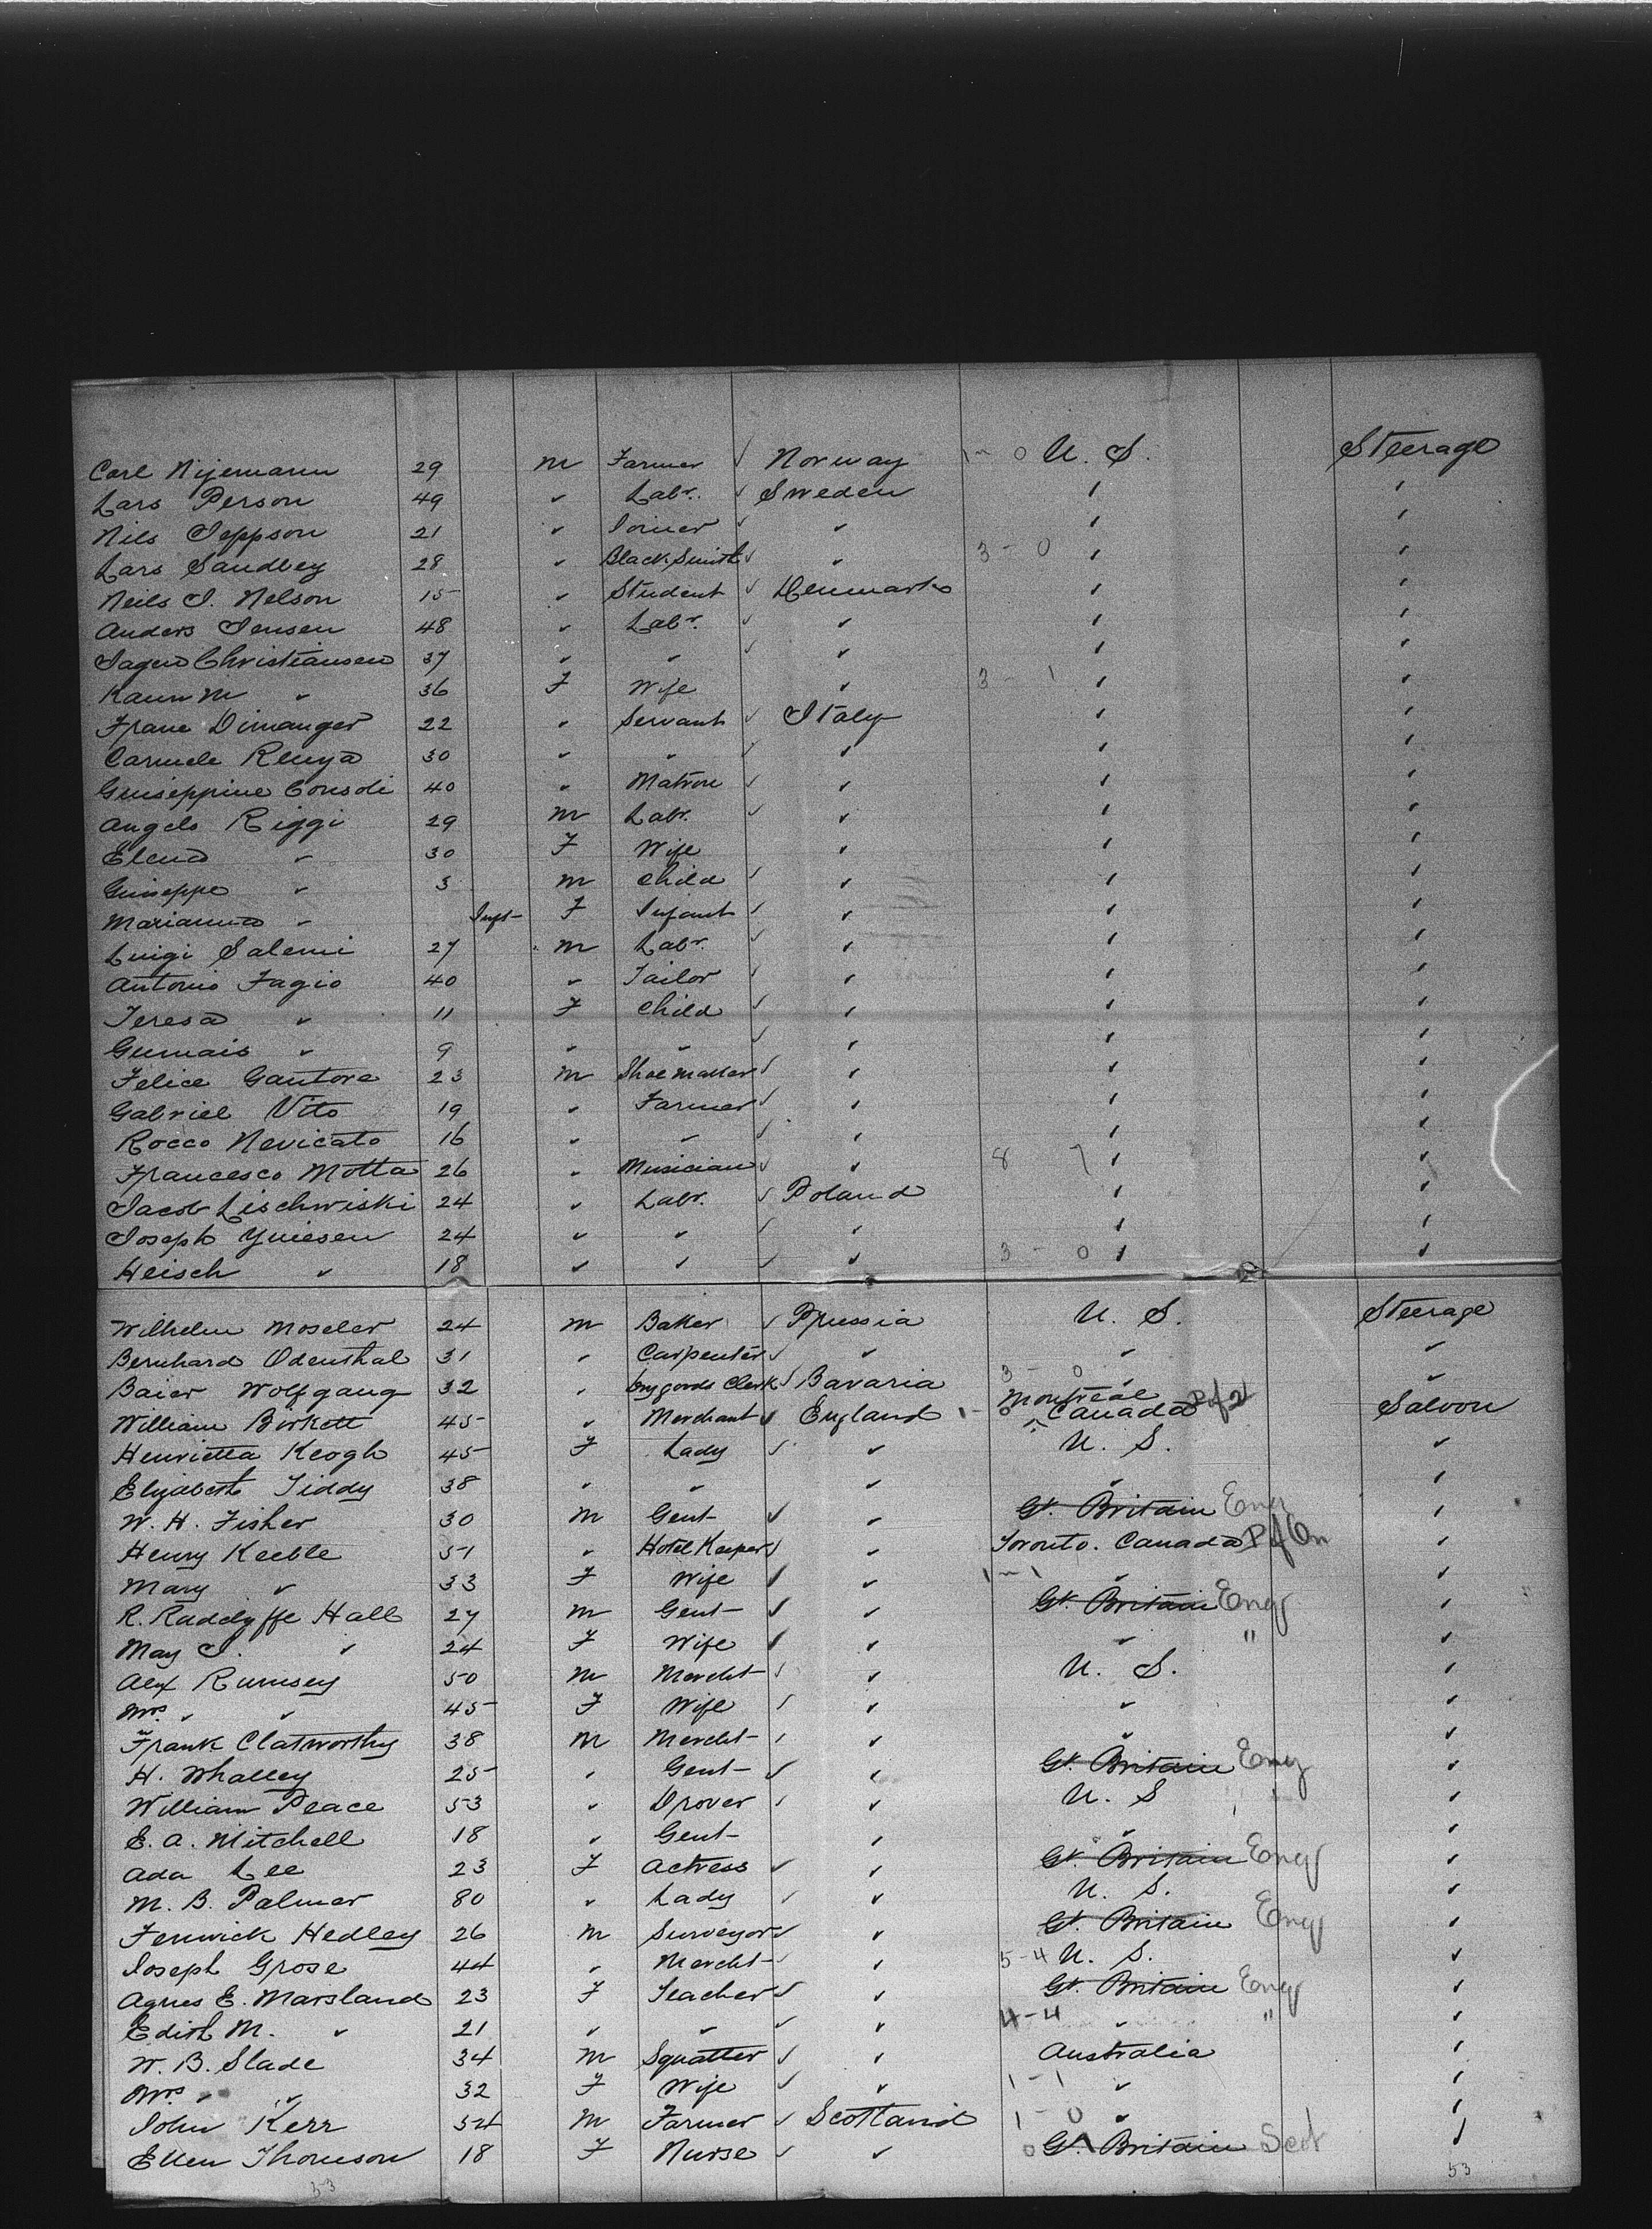 Carl Nijemann 29 m Farmer √ Norway 1 - 0 U. S. Steerage
Lars Person 49 " Labr. √ Sweden " "
Nils Jeppson 21 " Joiner √ " " "
Lars Sandbey 28 " BlackSmith √ " 3 - 0 " "
Neils J. Nelson 15 " Student √ Denmark " "
Anders Jensen 48 " Labr. √ " " "
Christiansen 37 " " √ " " "
Karen M " 36 F Wife " 3 - 1 " "
Franc Dimanger 22 " Servant √ Italy " "
Carmele Renya 30 " " √ " " "
Guiseppine Consoli 40 " Matron √ " " "
Angelo Riggi 29 m Labr. √ " " "
Elena " 30 F Wife " " "
Guiseppe " 3 m Child √ " " "
Marianna " Inft F Infant √ " " "
Luigi Salemi 27 m Labr. √ " " "
Antonio Fagio 40 " Tailor √ " " "
Teresa " 11 F Child √ " " "
Gumais " 9 " " √ " " "
Felice Gantore 23 m Shoemaker √ " " "
Gabriel Vito 19 " Farmer √ " " "
Rocco Nevicato 16 " " √ " " "
Francesco Motta 26 " Musician √ " 8 7 " "
Jacob Lischwiski 24 " Labr. √ Poland " "
Joseph 24 " " √ " " "
Heisch " 18 " " √ " 3 - 0 " "
Wilhelm Moseler 24 m Baker √ Prussia U. S. Steerage
Bernhard Odenthal 31 " Carpenter √ " " "
Baier Wolfgang 32 " Drygoods Clerk √ Bavaria 3 - 0 "
William Birkett 45 " Merchant √ England 1 - 0 Montreal Canada Saloon
Henrietta Keogh 45 F Lady √ " U. S. "
Elizabeth Tiddy 38 " " " " "
W. H. Fisher 30 m Gent √ " Gt. Britain Eng "
Henry Keeble 51 " Hotel Keeper √ " Toronto. Canada P of On "
Mary " 33 F Wife √ " 1 - 1 " "
R. Radclyffe Hall 27 m Gent √ " Gt. Britain Eng "
May J. " 24 F Wife √ " " " "
Alex Rumsey 50 m Mercht √ " U. S. "
Mrs. " " 45 F Wife √ " " "
Frank Clatworthy 38 m Mercht √ " " "
H. Whalley 25 " Gent √ " Gt. Britain Eng "
William Peace 53 " Drover √ " U. S "
E. A. Mitchell 18 " Gent " " "
Ada Lee 23 F Actress √ " Gt. Britain Eng "
M. B. Palmer 80 " Lady √ " U. S. "
Fenwick Hedley 26 m Surveyor √ " Gt. Britain Eng "
Joseph Grose 44 " Mercht √ " 5 - 4 U. S. "
Agnes E. Marsland 23 F Teacher √ " Gt. Britain Eng "
Edith M. " 21 " " √ " 4 - 4 " " "
W. B. Slade 34 m Squatter √ " Australia "
Mrs. " " 32 F Wife √ " 1 - 1 " "
John Kerr 54 m Farmer √ Scotland 1 - 0 " "
Ellen Thomson 18 F Nurse √ " 0 - 1 Gt. Britain Scot "
53 53